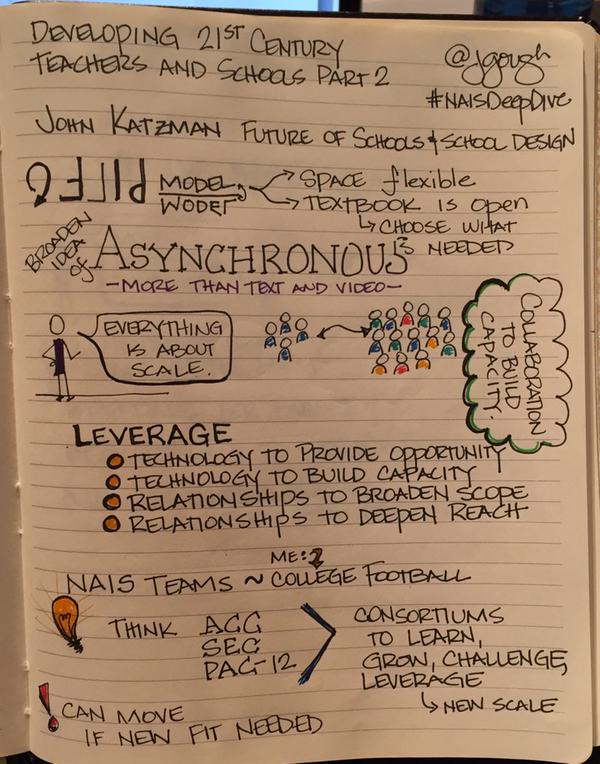 DEVELOPING 21ST CENTURY
TEACHERS AND SCHOOLS PART 2
@jgough
#NAISDeepDive
JOHN KATZMAN FUTURE OF SCHOOLS & SCHOOL DESIGN
FLIPPED MODEL
MODEL
SPACE flexible
TEXTBOOK IS open
CHOOSE WHAT
IS NEEDED
BROADEN
IDEA
of
ASYNCHRONOUS
-MORE THAN TEXT AND VIDEO-
EVERYTHING
IS ABOUT
SCALE.
COLLABORATION
TO BUILD
CAPACITY.
LEVERAGE
TECHNOLOGY TO PROVIDE OPPORTUNITY
TECHNOLOGY TO BUILD CAPACITY
RELATIONSHIPS TO BROADEN SCOPE
RELATIONSHIPS TO DEEPEN REACH
ME:
NAIS TEAMS ~ COLLEGE FOOTBALL
THINK ACC
SEC
PAC-12
CONSORTIUMS
TO LEARN,
GROW, CHALLENGE,
LEVERAGE
NEW SCALE
! CAN MOVE
IF NEW FIT NEEDED